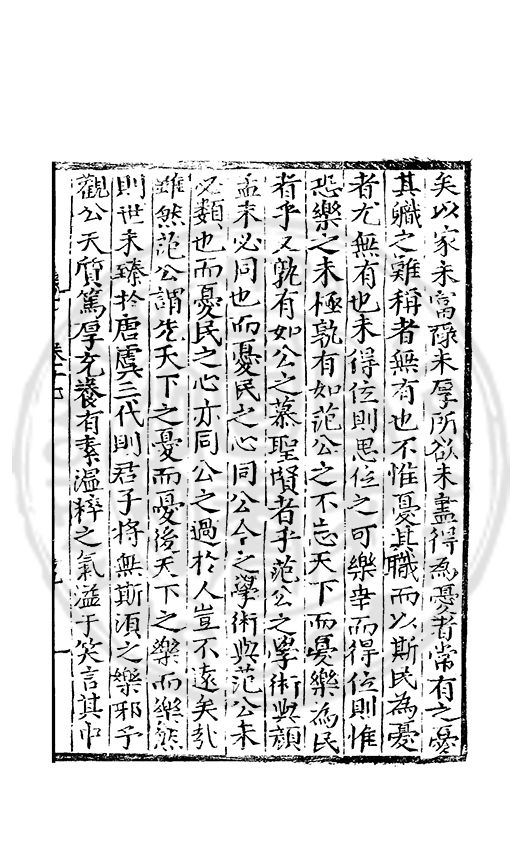 矣以家未富祿未厚所欲未盡得為憂者常有之憂
其職之難稱者無有也不惟憂其職而以斯民為憂
者尤無有也未得位則思位之可樂幸而得位則惟
恐樂之未極孰有如范公之不忘天下而憂樂為民
者乎又孰有如公之慕聖賢者乎范公之學術與顏
孟未必同也而憂民之心同公今之學術與范公未
必類也而憂民之心亦同公之過於人豈不遠矣哉
雖然范公謂先天下之憂而憂後天下之樂而樂然
則世未臻於唐虞三代則君子將無斯須之樂邪予
觀公天質篤厚充養有素溫粹之氣溢于笑言其中